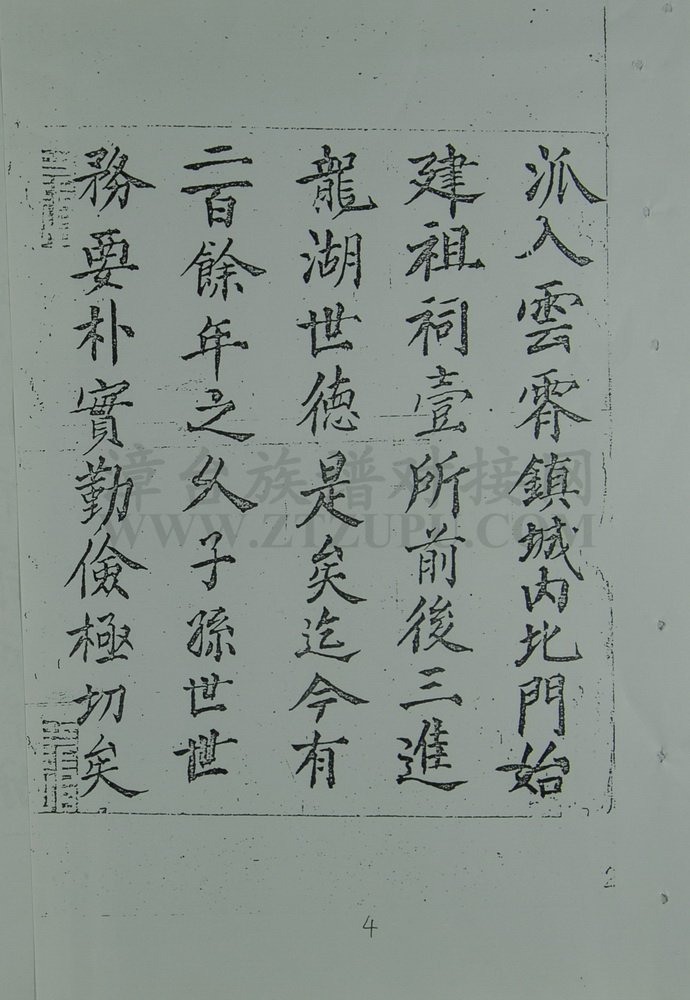 派入雲霄鎮城內北門始
建祖祠壹所前後三進
龍湖世德是矣迄今有
二百餘年之久子孫世世
務要朴實勤儉極切矣
漳台族谱对接网
WWW.ZTZUPU.COM
4